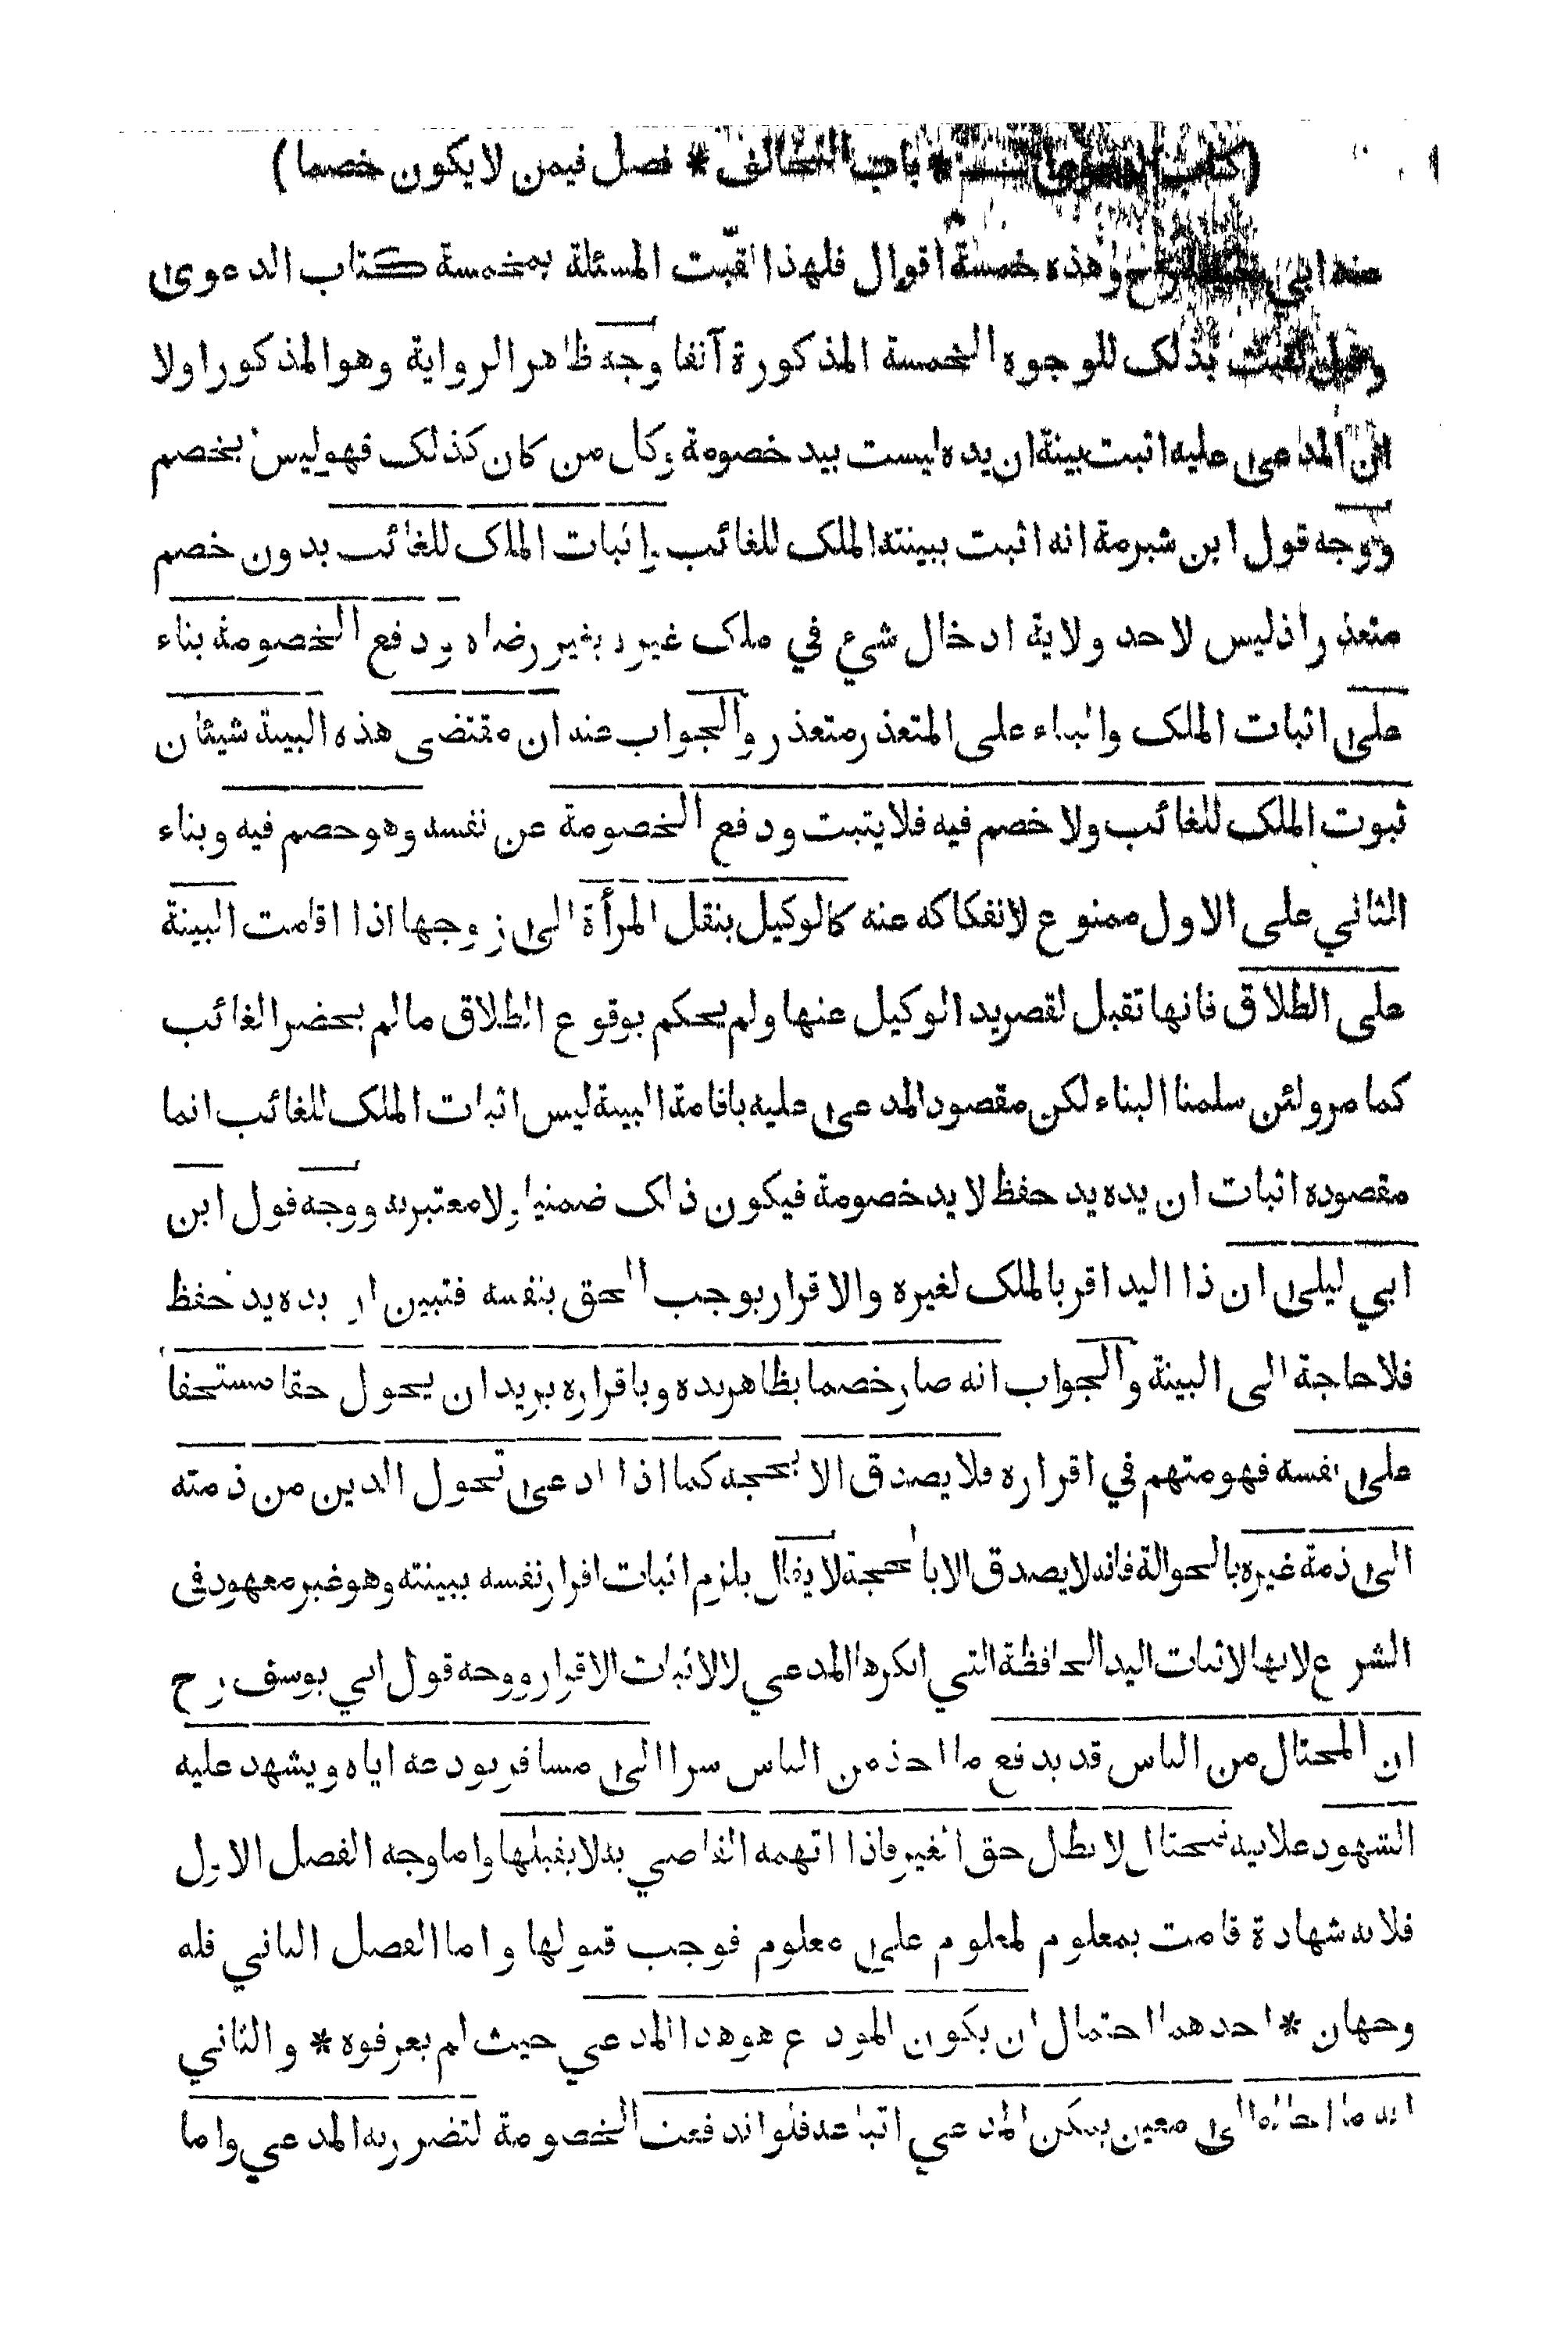 (كتاب الدعوى * باب التحالف * فصل فيمن لا يكون خصما)
عند ابي رح وهذه خمسة اقوال فلهذا لقبت المسئلة بمخمسة كتاب الدعوى
وقيل لقبت بذلك للوجوه الخمسة المذكورة آنفا وجه ظاهر الرواية وهو المذكور اولا
ان المدعى عليه اثبت ببينة ان يده ليست بيد خصومة وكل من كان كذلك فهو ليس بخصم
ووجه قول ابن شبرمة انه اثبت ببينته الملك للغائب واثبات الملك للغائب بدون خصم
متعذر اذ ليس لاحد ولاية ادخال شيء في ملك غيره بغير رضاه ودفع الخصومة بناء
على اثبات الملك والبناء على المتعذر متعذر والجواب عنه ان مقتضى هذه البينة شيئان
ثبوت الملك للغائب ولا خصم فيه فلا يثبت ودفع الخصومة عن نفسه وهو خصم فيه وبناء
الثاني على الاول ممنوع لانفكاكه عنه كالوكيل بنقل المرأة الى زوجها اذا اقامت البينة
على الطلاق فانها تقبل لقصر يد الوكيل عنها ولم يحكم بوقوع الطلاق ما لم يحضر الغائب
كما مر ولئن سلمنا البناء لكن مقصود المدعى عليه باقامة البينة ليس اثبات الملك للغائب انما
مقصوده اثبات ان يده يد حفظ لا يد خصومة فيكون ذلك ضمنيا ولا معتبر به ووجه قول ابن
ابي ليلى ان ذا اليد اقر بالملك لغيره والاقرار يوجب الحق بنفسه فتبين ان يده يد حفظ
فلا حاجة الى البينة والجواب انه صار خصما بظاهر يده وباقراره يريد ان يحول حقا مستحقا
على نفسه فهو متهم في اقراره فلا يصدق الا بحجة كما اذا ادعى تحول الدين من ذمته
الى ذمة غيره بالحوالة فانه لا يصدق الا بالحجة لا يقال يلزم اثبات اقرار نفسه ببينته وهو غير معهود في
الشرع لانها لاثبات اليد الحافظة التي انكرها المدعي لا لاثبات الاقرار ووجه قول ابي يوسف رح
ان المحتال من الناس قد يدفع ما اخذ من الناس سرا الى مسافر يودعه اياه ويشهد عليه
الشهود علانية فيحتال لابطال حق الغير فاذا اتهمه القاضي به لا يقبلها واما وجه الفصل الاول
فلانه شهادة قامت بمعلوم لمعلوم على معلوم فوجب قبولها واما الفصل الثاني فله
وجهان * احدهما احتمال ان يكون المودع هو هذا المدعي حيث لم يعرفوه * والثاني
انه ما احاله الى معين يمكن المدعي اتباعه فلو اندفعت الخصومة لتضرر به المدعي واما